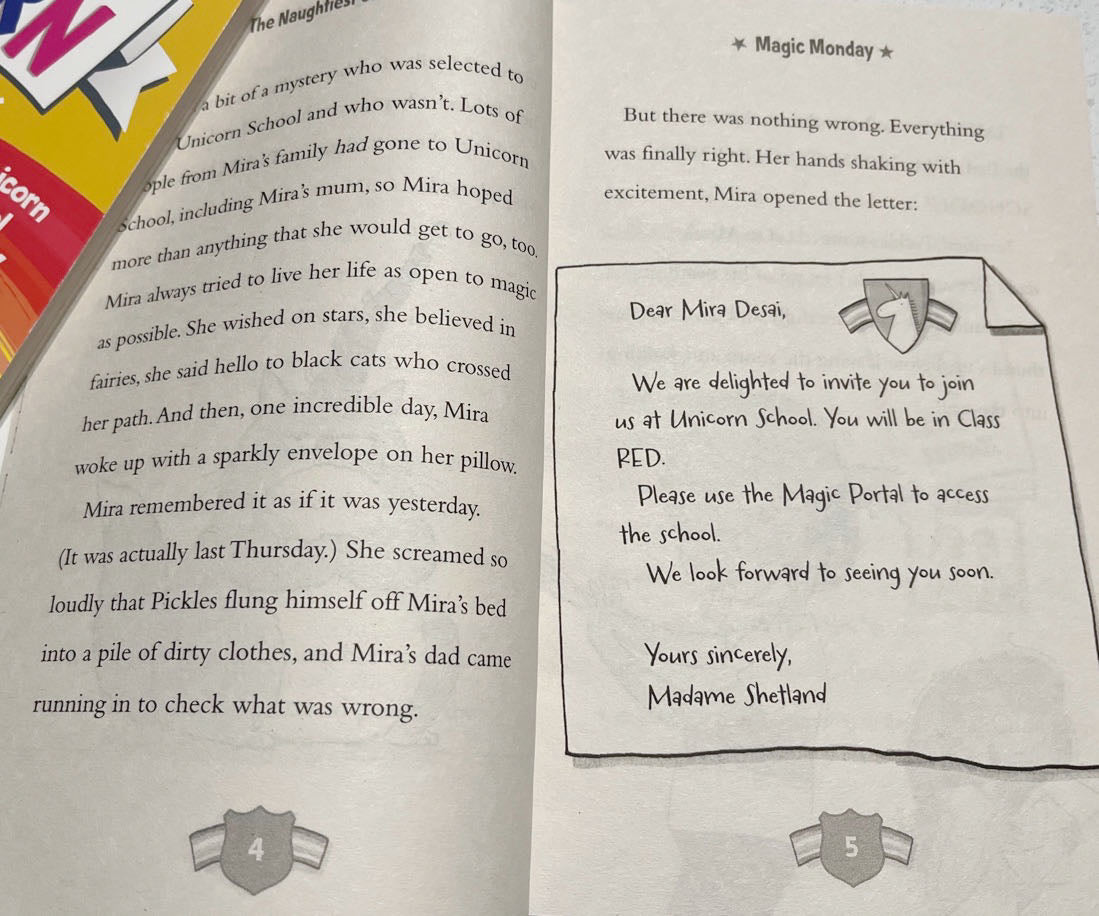 N
icorn
The Naughtiest
a bit of a mystery who was selected to
Unicorn School and who wasn't. Lots of
ople from Mira's family had gone to Unicorn
School, including Mira's mum, so Mira hoped
more than anything that she would get to go, too.
Mira always tried to live her life as open to magic
as possible. She wished on stars, she believed in
fairies, she said hello to black cats who crossed
her path. And then, one incredible day, Mira
woke up with a sparkly envelope on her pillow.
Mira remembered it as if it was yesterday.
(It was actually last Thursday.) She screamed so
loudly that Pickles flung himself off Mira's bed
into a pile of dirty clothes, and Mira's dad came
running in to check what was wrong.
4
Magic Monday
But there was nothing wrong. Everything
was finally right. Her hands shaking with
excitement, Mira opened the letter:
Dear Mira Desai,
We are delighted to invite you to join
us at Unicorn School. You will be in Class
RED.
Please use the Magic Portal to access
the school.
We look forward to seeing you soon.
Yours sincerely,
Madame Shetland
5